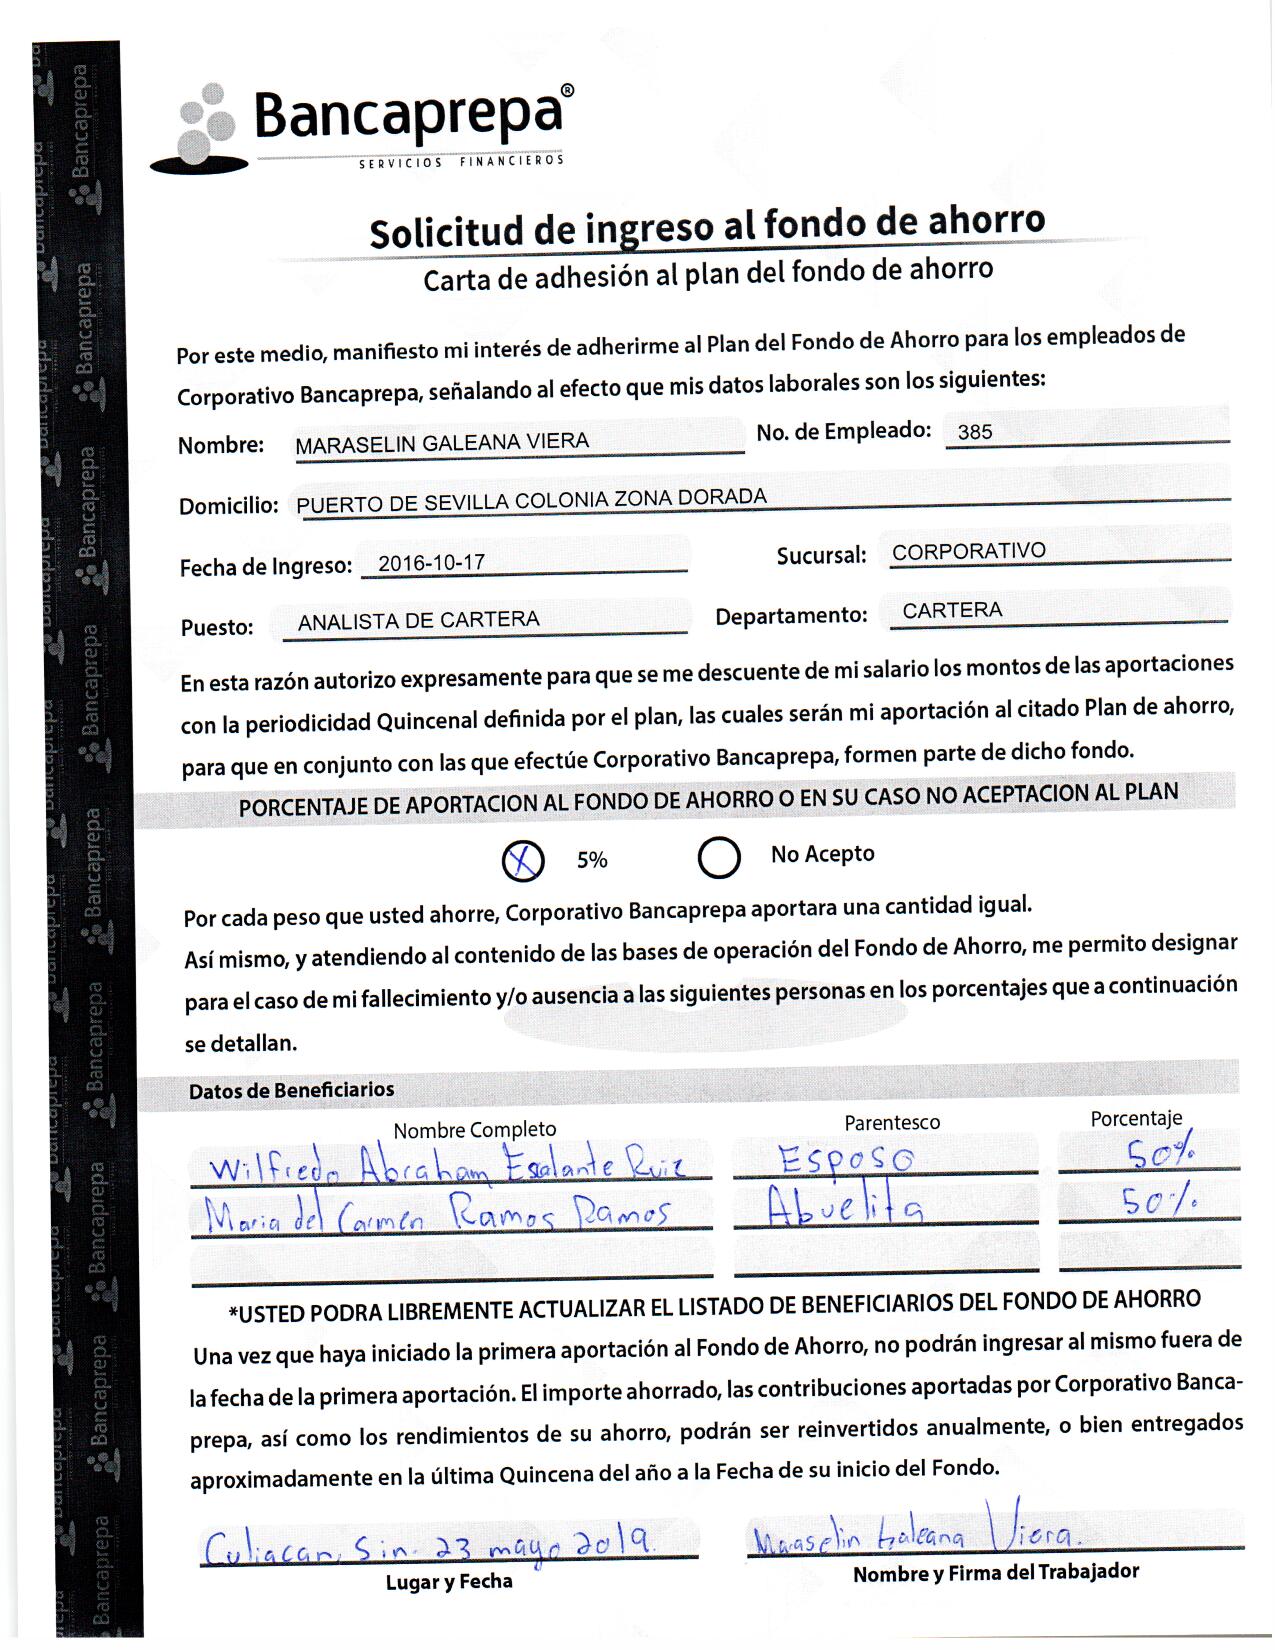 Bancaprepa®
SERVICIOS FINANCIEROS
Solicitud de ingreso al fondo de ahorro
Carta de adhesión al plan del fondo de ahorro
Por este medio, manifiesto mi interés de adherirme al Plan del Fondo de Ahorro para los empleados de
Corporativo Bancaprepa, señalando al efecto que mis datos laborales son los siguientes:
Nombre: MARASELIN GALEANA VIERA No. de Empleado: 385
Domicilio: PUERTO DE SEVILLA COLONIA ZONA DORADA
Fecha de Ingreso: 2016-10-17 Sucursal: CORPORATIVO
Puesto: ANALISTA DE CARTERA Departamento: CARTERA
En esta razón autorizo expresamente para que se me descuente de mi salario los montos de las aportaciones
con la periodicidad Quincenal definida por el plan, las cuales serán mi aportación al citado Plan de ahorro,
para que en conjunto con las que efectúe Corporativo Bancaprepa, formen parte de dicho fondo.
PORCENTAJE DE APORTACION AL FONDO DE AHORRO O EN SU CASO NO ACEPTACION AL PLAN
X 5% No Acepto
Por cada peso que usted ahorre, Corporativo Bancaprepa aportara una cantidad igual.
Así mismo, y atendiendo al contenido de las bases de operación del Fondo de Ahorro, me permito designar
para el caso de mi fallecimiento y/o ausencia a las siguientes personas en los porcentajes que a continuación
se detallan.
Datos de Beneficiarios
Nombre Completo Parentesco Porcentaje
Wilfredo Abraham Esalante Ruiz Esposo 50%
Maria del Carmen Ramos Ramos Abuelita 50%
*USTED PODRA LIBREMENTE ACTUALIZAR EL LISTADO DE BENEFICIARIOS DEL FONDO DE AHORRO
Una vez que haya iniciado la primera aportación al Fondo de Ahorro, no podrán ingresar al mismo fuera de
la fecha de la primera aportación. El importe ahorrado, las contribuciones aportadas por Corporativo Banca-
prepa, así como los rendimientos de su ahorro, podrán ser reinvertidos anualmente, o bien entregados
aproximadamente en la última Quincena del año a la Fecha de su inicio del Fondo.
Culiacan, Sin. 23 mayo 2019. Maraselin Galeana Viera.
Lugar y Fecha Nombre y Firma del Trabajador